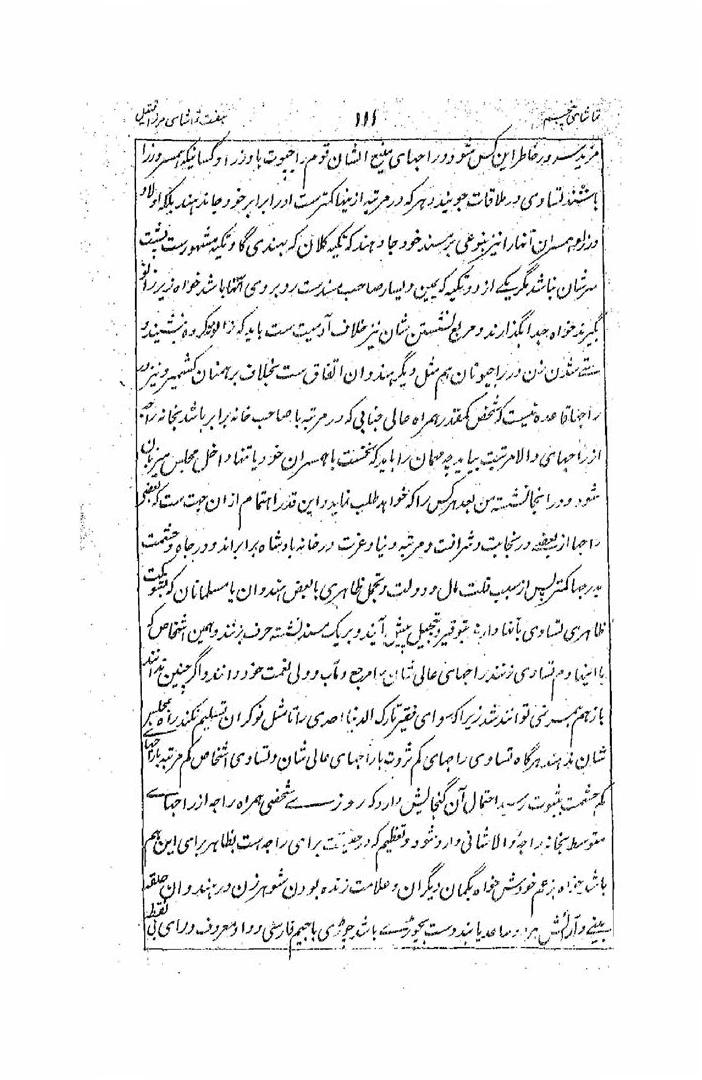 تماشای پنجم ١١١ هفت تماشای مرزا قتیل
مزید سرور خاطر این کس شود و در راجهای منیع الشان قوم راجپوت با وزرا و کسانیکه همسر وزرا
باشند تساوی در ملاقات جویند و هر که در مرتبه ازینها کمترست او را برابر خود جا ندهند بلکه اولاد
وزرا و همسران آنها را نیز بنوعی بر مسند خود جا دهند که تکیه کلان که بهندی گاو تکیه مشهورست پشت
سرشان نباشد مگر یکی از دو تکیه که یمین و یسار صاحب مسندست رو بروی آنها باشد خواه زیر زانو
بگیرند خواه جدا گذارند و مربع نشستن شان نیز خلاف آدمیت ست باید که زانو ته کرده بنشینند و
ستے شدن زن در راجپوتان هم مثل دیگر هندوان اتفاق ست بخلاف برهمنان کشمیر و نیز در
راجها قاعده نیست که شخص کمقدر همراه عالی جنابی که در مرتبه با صاحب خانه برابر باشد بخانه راجه
از راجهای والا مرتبت بیاید چه مهمان را باید که نخست با همسران خود یا تنها داخل مجلس میزبان
شود و در آنجا نشسته من بعد هر کس را که خواهد طلب نماید و این قدر اهتمام از ان جهت ست که بعضی
راجها از بعضے در نجابت و شرافت و مرتبه دنیا و عزت در خانه بادشاه برابر اند و در جاه و حشمت
بدرجها کمتر پس از سبب قلت مال و دولت و تجمل ظاهری بالعض هندوان یا مسلمانان که بشوکت
ظاهری تساوی بآنها دارند بتوقیر و تبجیل پیش آیند و بر یک مسند نشسته حرف بزنند و همین اشخاص که
با اینها دم تساوی زنند راجهای عالی شان را مرجع و مآب و ولی نعمت خود دانند و اگر چنین ندانند
باز هم همسر نمی توانند شد زیرا که سوای فقیر تارک الدنیا احدی را تا مثل نوکران تسلیم نکند راه بمجلس
شان ندهند هرگاه تساوی راجهای کم ثروت با راجهای عالی شان و تساوی اشخاص کم مرتبه با راجهای
کم حشمت بثبوت رسید احتمال آن گنجایش دارد که روزے شخصی همراه راجه از راجهاے
متوسط بخانه راجه والا شانی وارد شود و تعظیم که در حقیقت برای راجه ست بظاهر برای این هم
باشد خواه بزعم خودش خواه بگمان دیگران و علامت زنده بودن شوهر زن در هندوان حلقه
بینی و آرایش هر دو ساعد یا بند دست بچوڑے باشد چوڑی با جیم فارسی و واو معروف و رای بی نقط